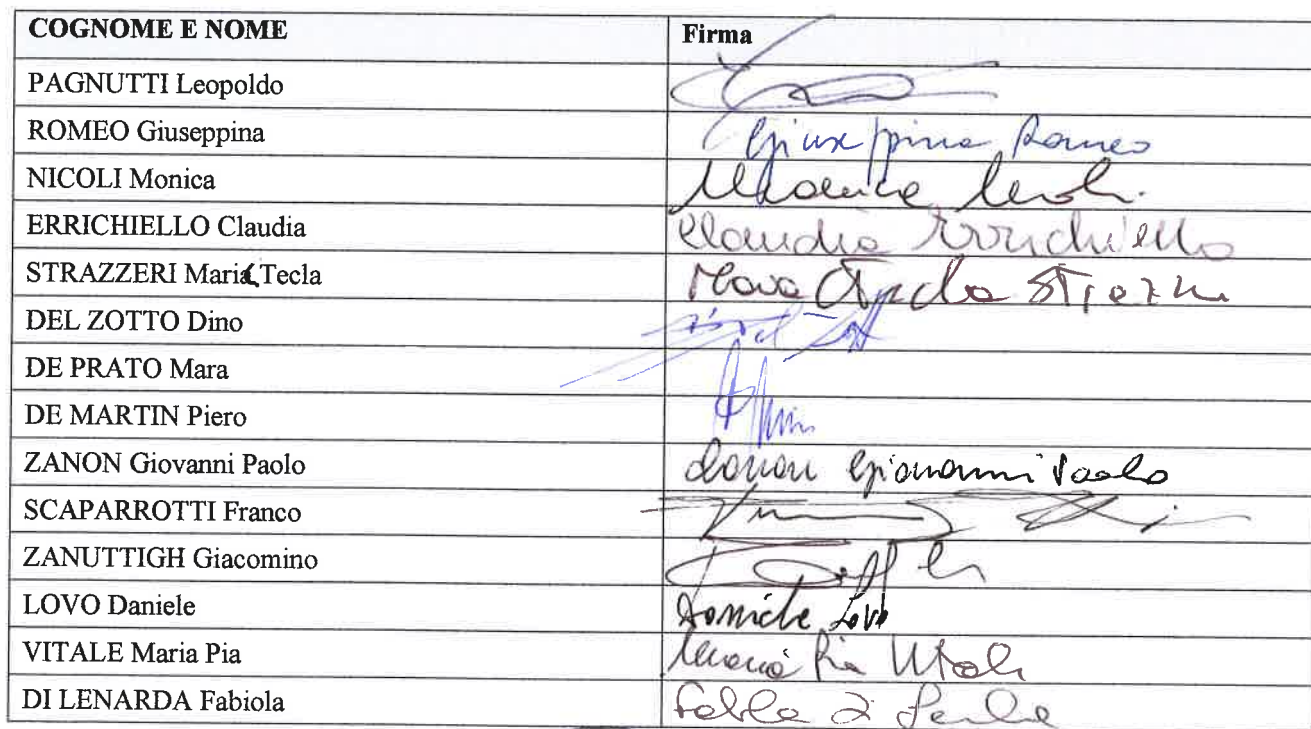 COGNOME E NOME Firma
PAGNUTTI Leopoldo
ROMEO Giuseppina Giuseppina Romeo
NICOLI Monica Monica Nicoli
ERRICHIELLO Claudia Claudia Errichiello
STRAZZERI Maria Tecla Maria Tecla Strazzeri
DEL ZOTTO Dino
DE PRATO Mara
DE MARTIN Piero
ZANON Giovanni Paolo Zanon Giovanni Paolo
SCAPARROTTI Franco
ZANUTTIGH Giacomino
LOVO Daniele Daniele Lovo
VITALE Maria Pia Maria Pia Vitale
DI LENARDA Fabiola